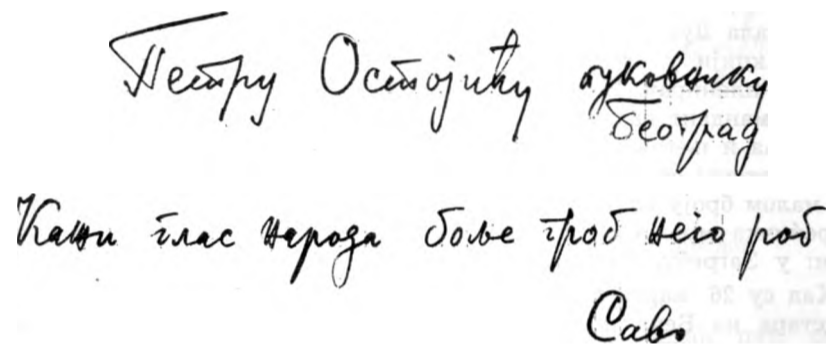 Петру Остојићу пуковнику
Београд
Кажи глас народа боље гроб него роб
Саво